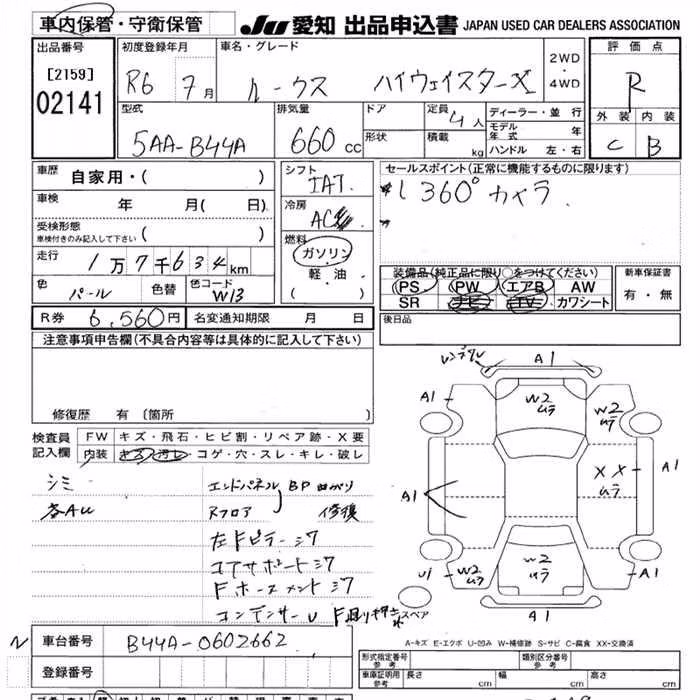 車内保管・守衛保管
JU 愛知 出品申込書 JAPAN USED CAR DEALERS ASSOCIATION
出品番号 初度登録年月 車名・グレード 2WD・4WD 評価点
[2159] R6 7月 ルークス ハイウェイスターX R
02141
型式 排気量 ドア 定員 4人 ディーラー・並行 外装 内装
5AA-B44A 660cc 形状 積載 kg モデル年式 年 C B
ハンドル 左・右
車歴 自家用・( ) シフト セールスポイント(正常に機能するものに限ります)
IAT 360°カメラ
車検 年 月( 日) 冷房
AC
受検形態
車検付きのみ記入して下さい ( ) 燃料
ガソリン
走行 1万7千634km 軽・油 装備品(純正品に限り○をつけてください) 新車保証書
( ) PS PW エアB AW 有・無
色 パール 色替 色コード W13 SR ナビ TV カワシート
R券 6,560円 名変通知期限 月 日 後日品
注意事項申告欄(不具合内容等は具体的に記入して下さい)
修復歴 有 〔箇所
A1
A1 W2 ムラ W2 ムラ
A1 XX ムラ A1
W2 ムラ W2 ムラ A1
A1
スペア
検査員記入欄 FW キズ・飛石・ヒビ割・リペア跡・X要
内装 キズ・汚レ・コゲ・穴・スレ・キレ・破レ
シミ エンドパネル BP
各AU Rフロア 修復
左Fピラーシワ
コアサポートシワ
コンデンサーU
車台番号 B44A-0602662
登録番号
A-キズ E-エクボ U-凹み W-補修跡 S-サビ C-腐食 XX-交換済
形式指定番号 参考 類別区分番号 参考
車庫証明用 参考 長さ cm 幅 cm 高さ cm